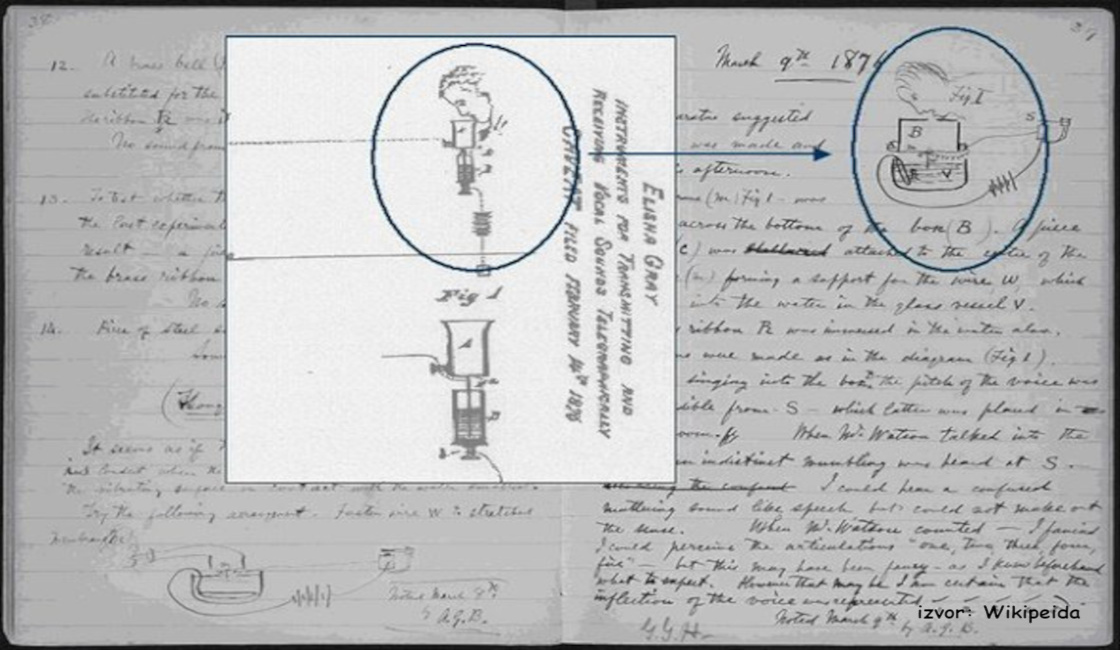 38
12. A brass bell
substituted for the
the ribbon R was
No sound from
13. To test whether
the last experiment
result — a
the brass ribbon
No
14. Piece of steel
It seems as if
and contact when the
the vibrating surface in contact with the water
Try the following arrangement. Fasten wire W to stretched
membrane
Noted March 8th
by A.G.B.
INSTRUMENTS FOR TRANSMITTING AND
RECEIVING VOCAL SOUNDS TELEGRAPHICALLY
CAVEAT FILED FEBRUARY 14th 1876
ELISHA GRAY
Fig 1
A
39
March 9th 1876
Fig. 1
B
S
V
suggested
was made and
afternoon.
(m) Fig 1 - was
across the bottom of the box (B). A piece
(C) was attached to the centre of the
(m) forming a support for the wire W, which
into the water in the glass vessel V.
ribbon R was immersed in the water also.
were made as in the diagram (Fig 1).
singing into the box, the pitch of the voice was
from S — which latter was placed in
When Mr. Watson talked into the
indistinct mumbling was heard at S.
I could hear a confused
muttering sound like speech but could not make out
the sense. When Mr. Watson counted — I fancied
I could perceive the articulations "one, two, three, four,
five" — but this may have been fancy — as I knew beforehand
what to expect. However that may be I am certain that the
inflection of the voice was represented
izvor: Wikipeida
Noted March 9th by A.G.B.
G.G.H.